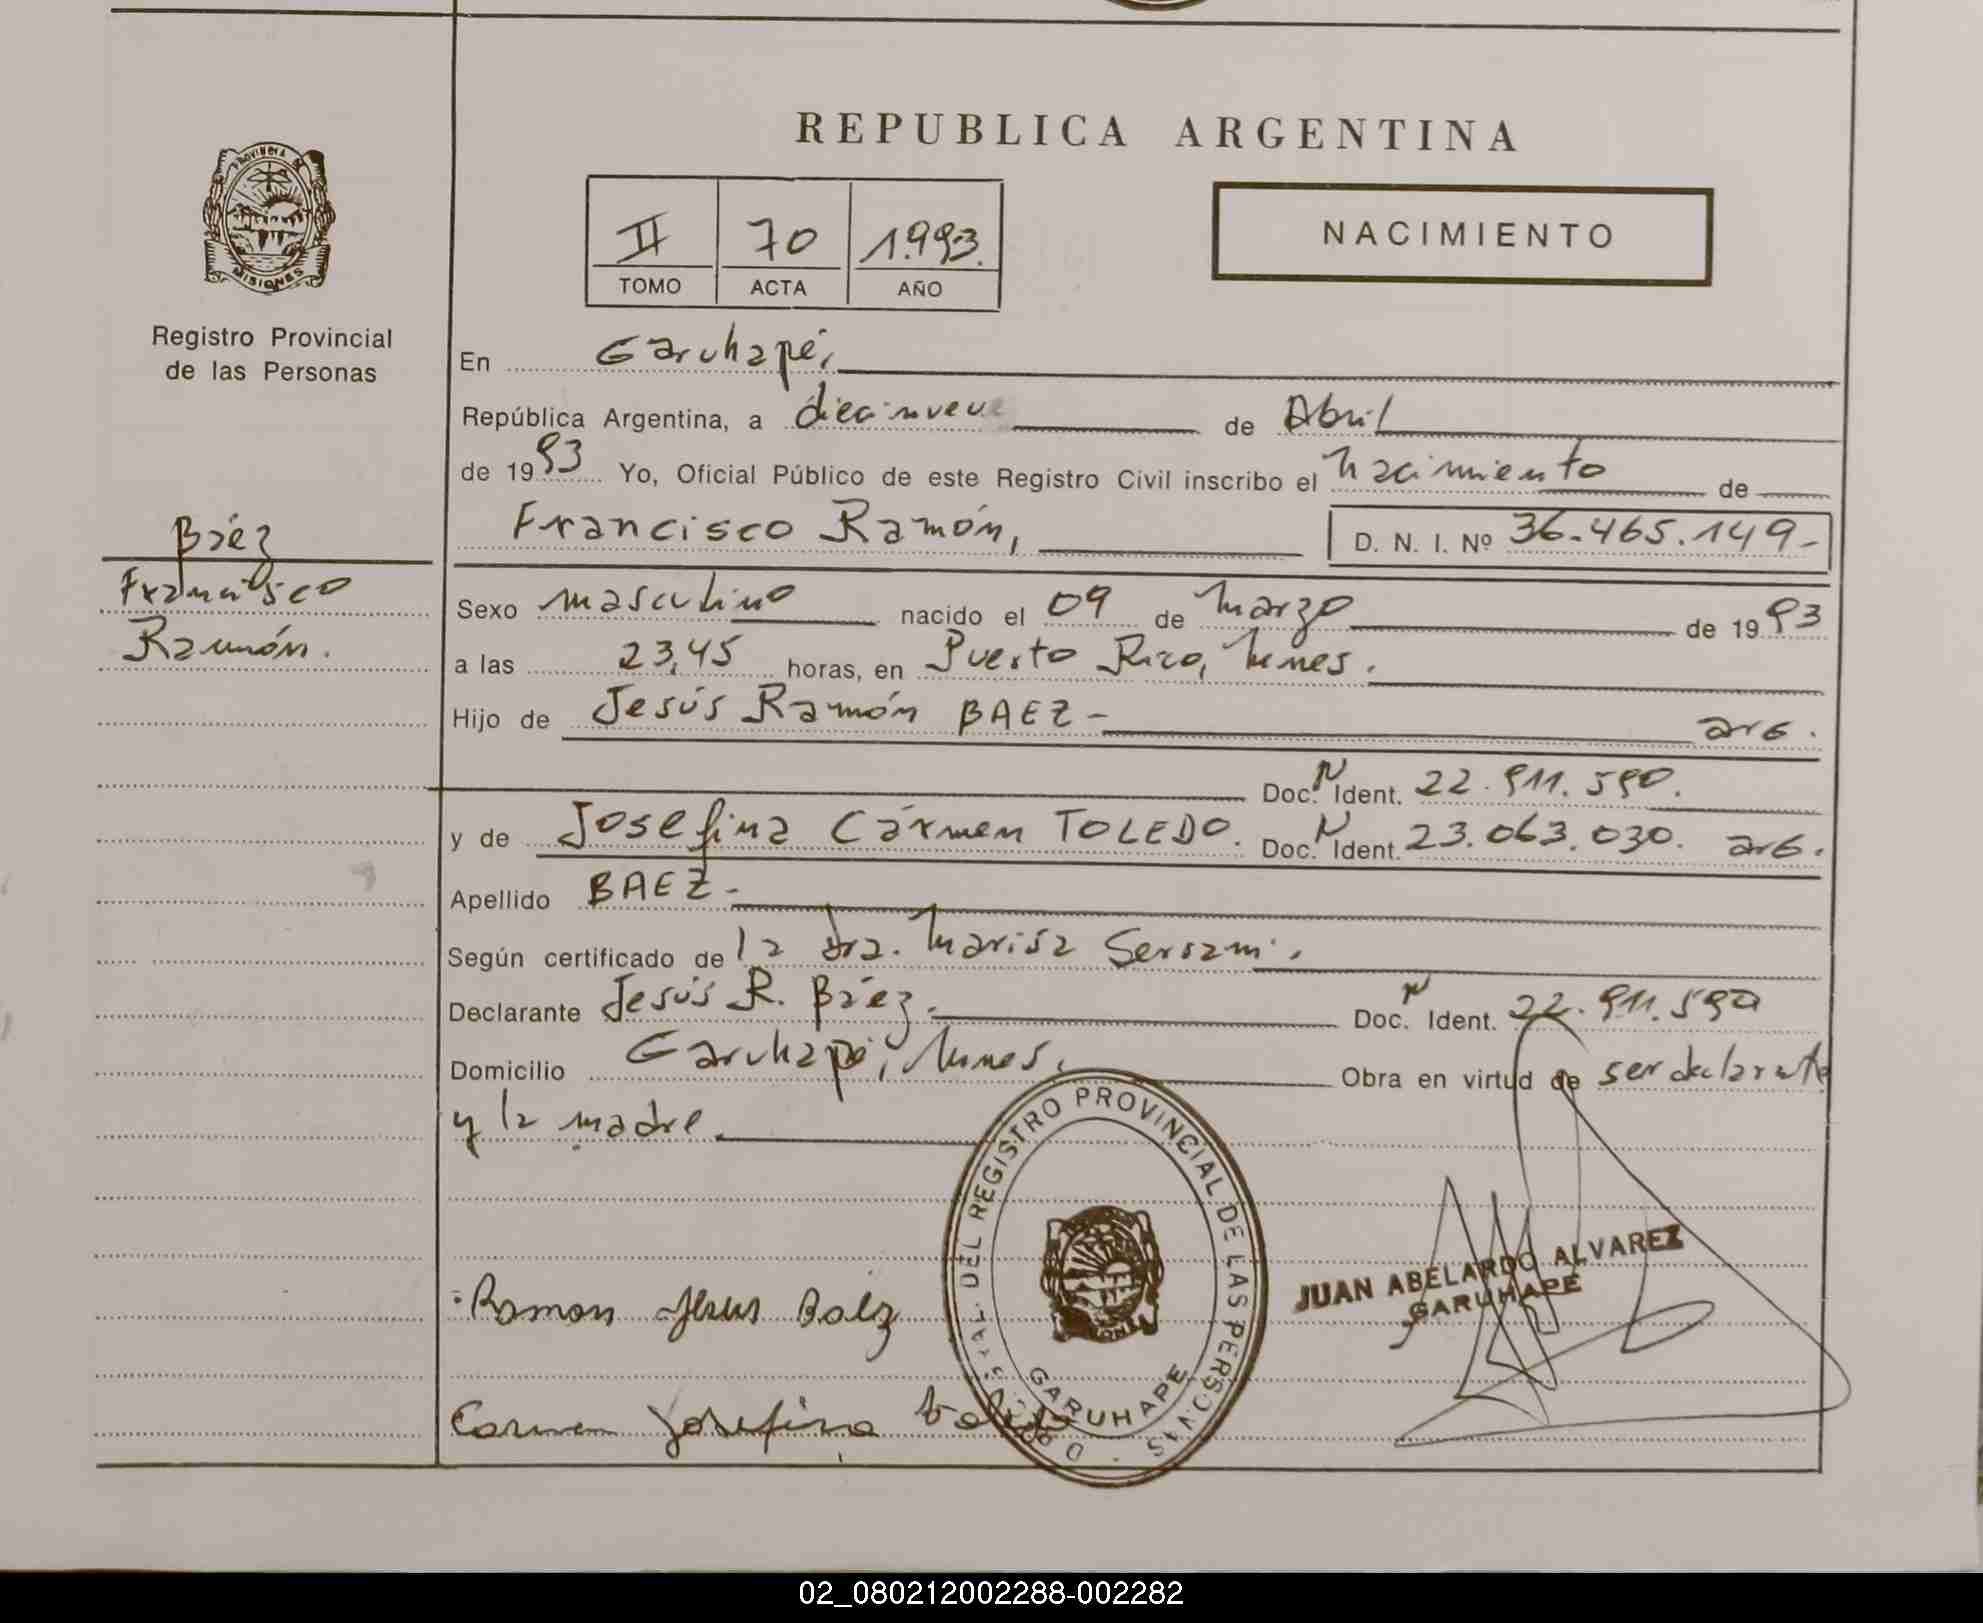 REPUBLICA ARGENTINA
PROVINCIA DE
MISIONES
Registro Provincial
de las Personas
Báez
Francisco
Ramón.
NACIMIENTO
II 70 1.993.
TOMO ACTA AÑO
En Garuhapé,
República Argentina, a diecinueve de Abril
de 1993 Yo, Oficial Público de este Registro Civil inscribo el nacimiento de
Francisco Ramón, D. N. I. Nº 36.465.149-
Sexo masculino nacido el 09 de marzo de 1993
a las 23,45 horas, en Puerto Rico, Mnes.
Hijo de Jesús Ramón BAEZ- arg.
Doc. N Ident. 22.911.590.
y de Josefina Cármen TOLEDO. Doc. N Ident. 23.063.030. arg.
Apellido BAEZ-
Según certificado de la dra. Marisa
Declarante Jesús R. Báez. Doc. N Ident. 22.911.590
Domicilio Garuhapé, Mnes. Obra en virtud de ser declarante
y la madre.
DEL REGISTRO PROVINCIAL DE LAS PERSONAS
GARUHAPE
JUAN ABELARDO ALVAREZ
GARUHAPE
Ramon Jesus Baez
Carmen Josefina toledo
02_080212002288-002282